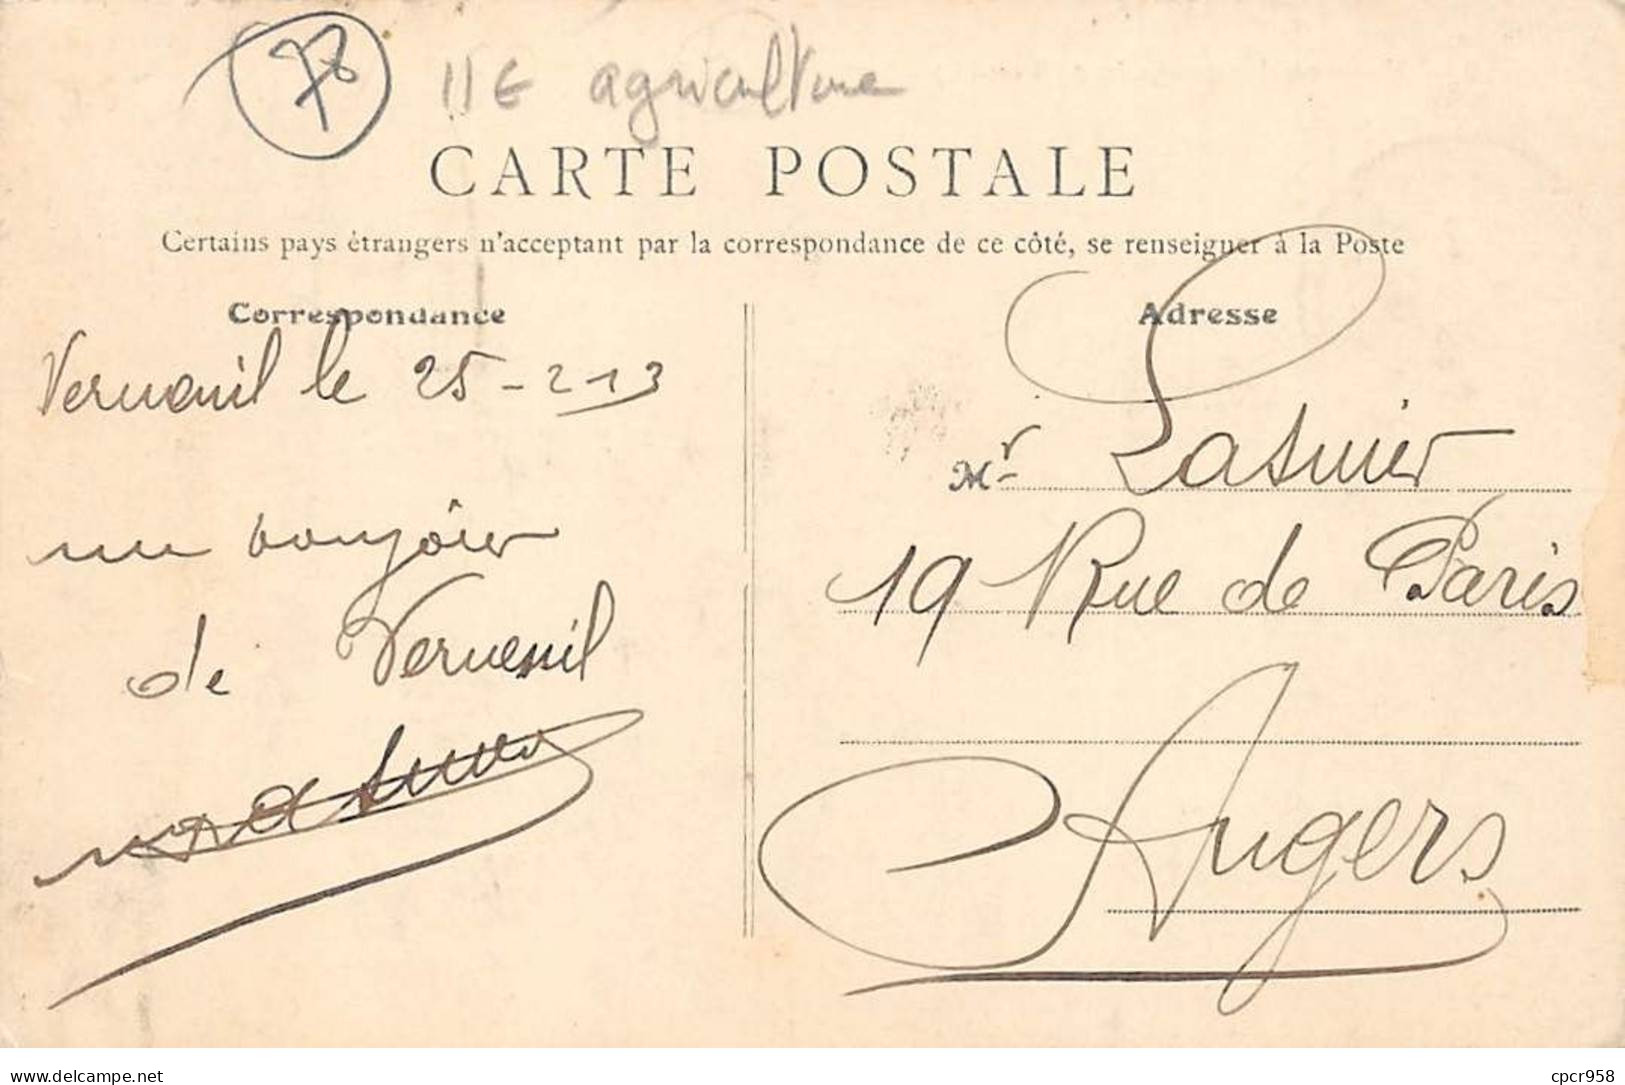 78
11€ agriculture
CARTE POSTALE
Certains pays étrangers n'acceptant par la correspondance de ce côté, se renseigner à la Poste
Correspondance
Verneuil le 25-2-13
un bonjour
de Verneuil
Adresse
Mr Lasnier
19 Rue de Paris
Angers
delcampe.net
cpcr958